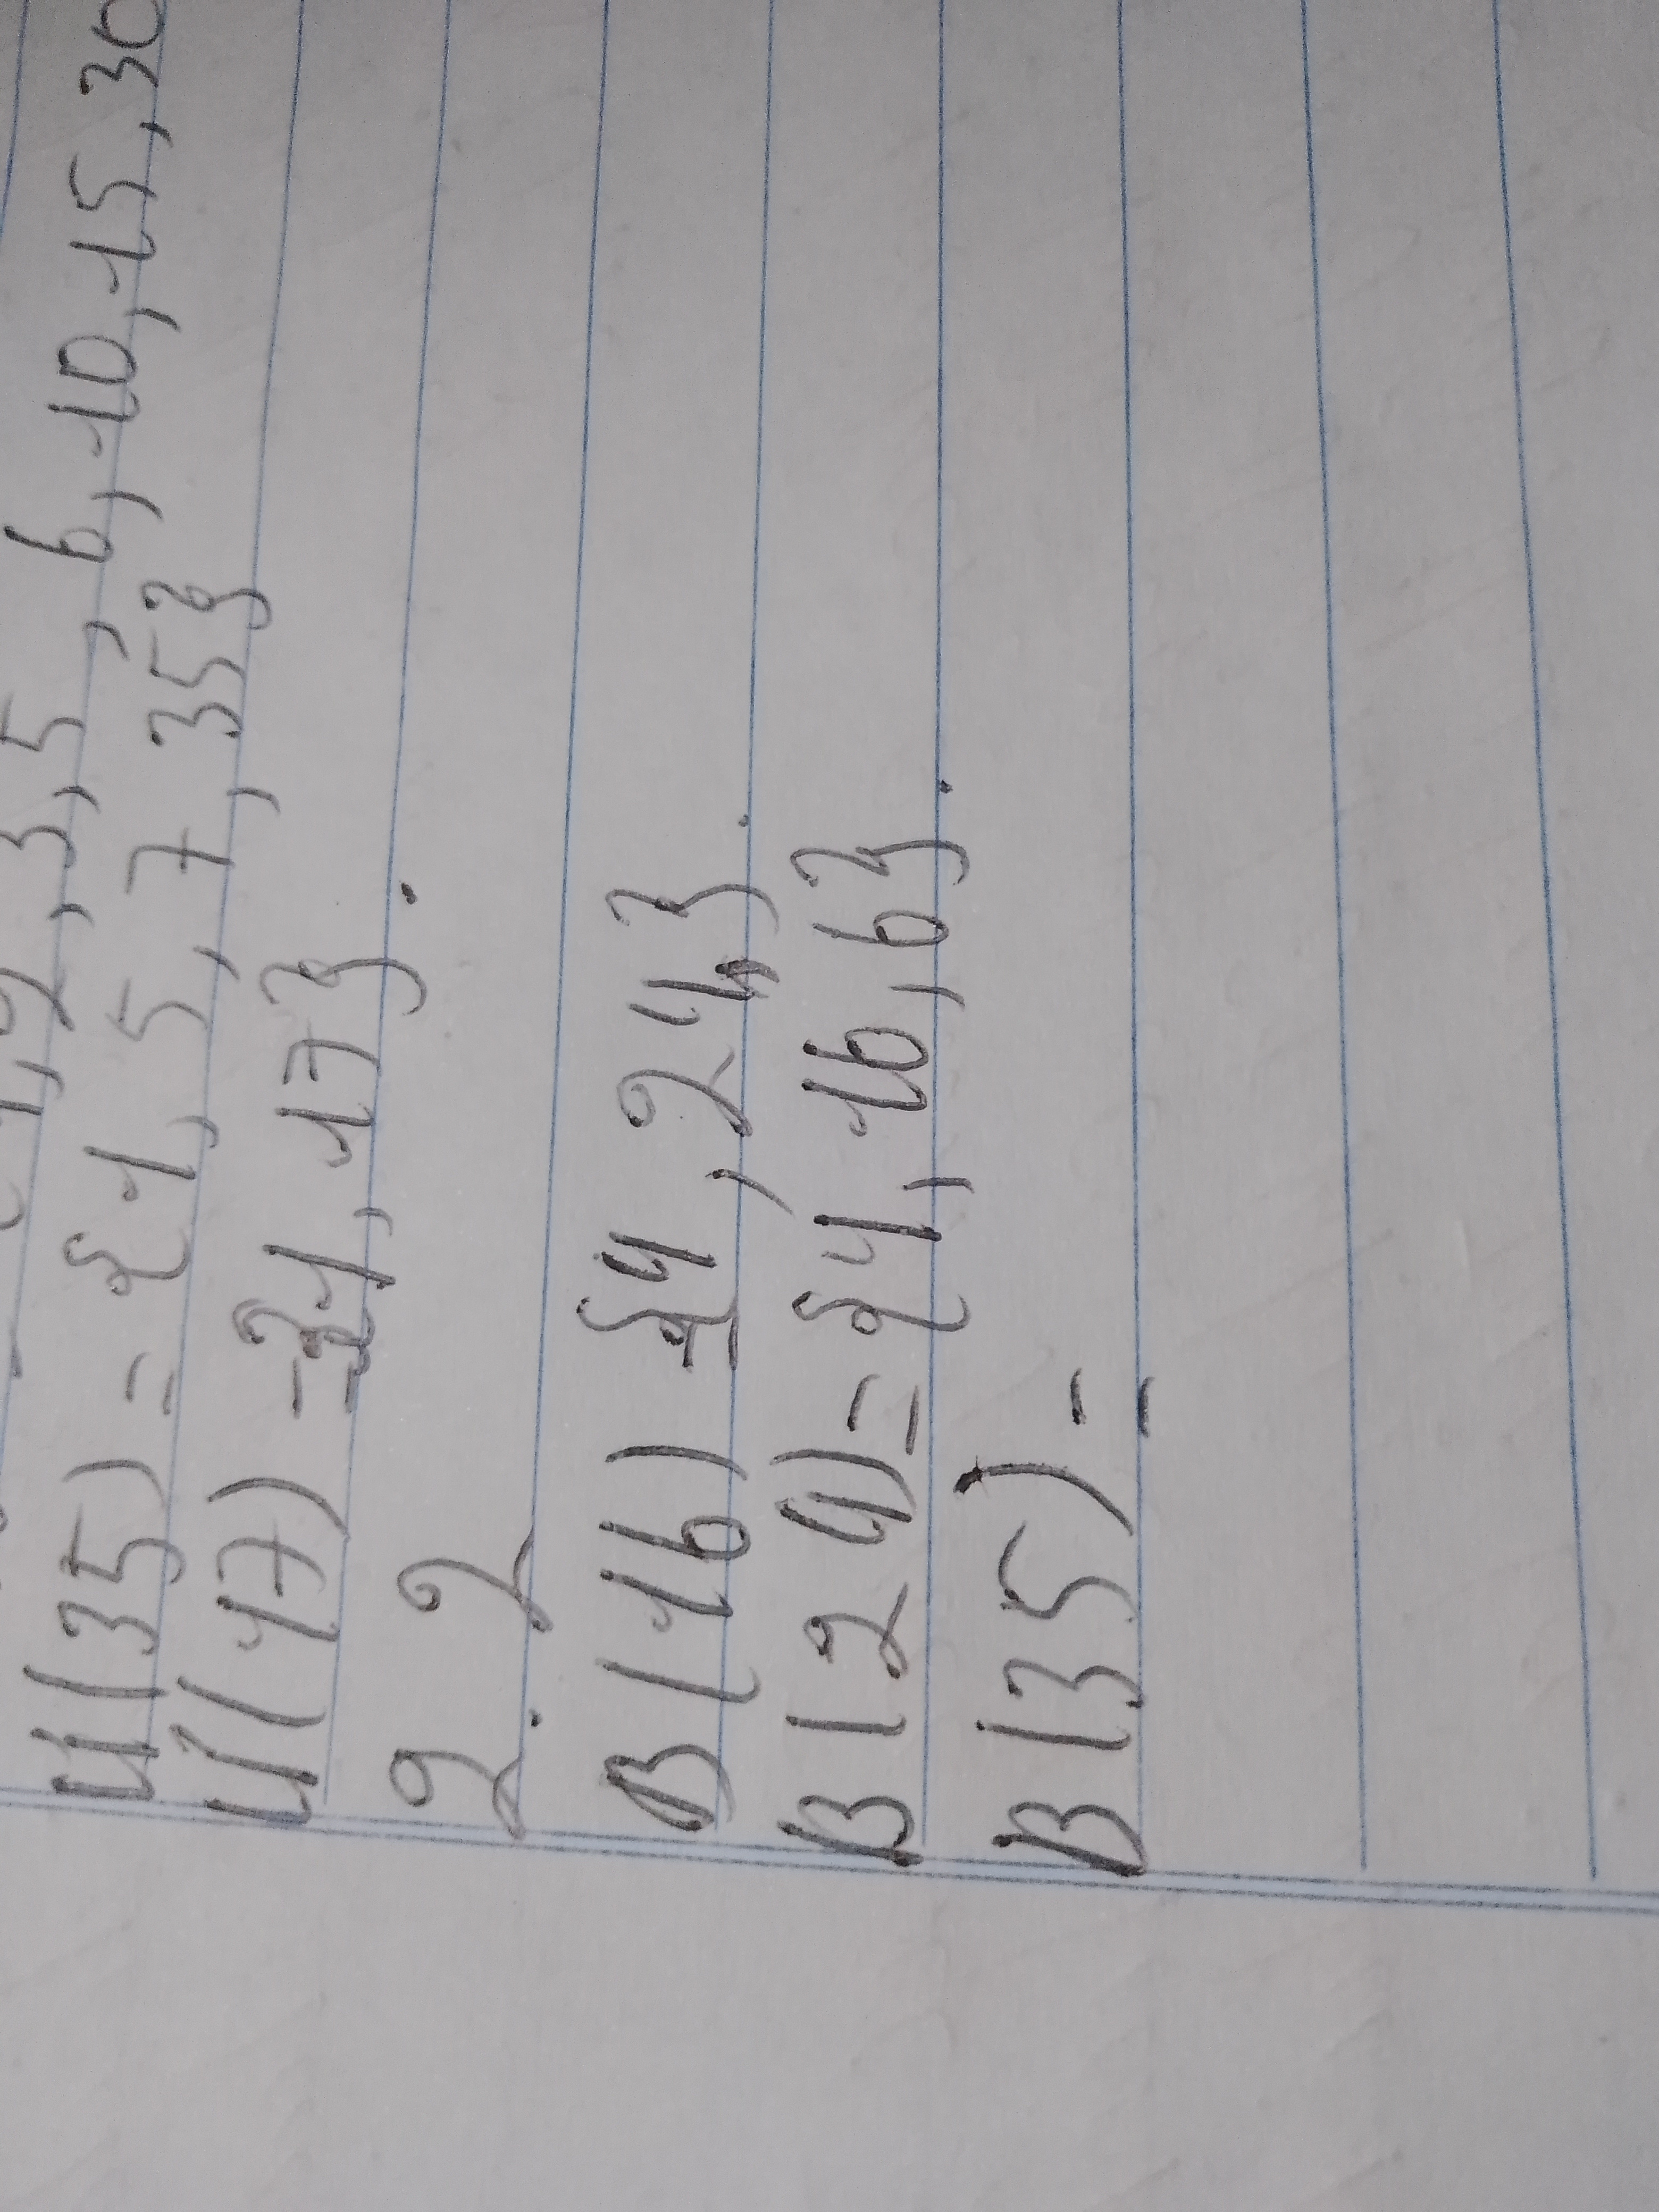 1, 2, 3, 5, 6, 10, 15, 30
Ư(35) = {1, 5, 7, 35}
Ư(17) = {1, 17}.
2. 2
B(16) = {4, 24,}.
B(24) = {4, 16, 6}.
B(35) =